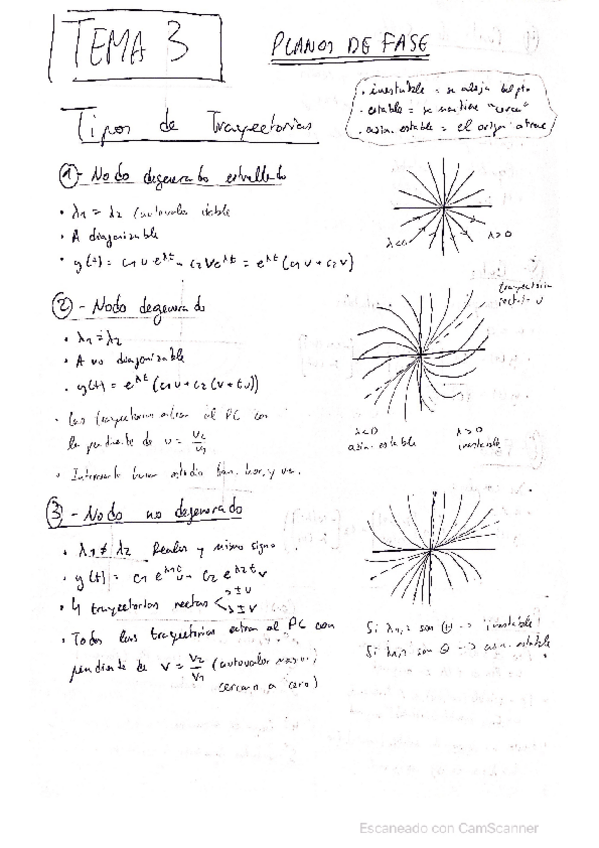 TEMA 3
PLANOS DE FASE
· inestable = se aleja del pto
· estable = se mantiene "cerca"
· asin. estable = el origen atrae
Tipos de Trayectorias
1- Nodo degenerado estrellado
· λ1 = λ2 (autovalor doble
· A diagonizable
· y(t) = c1 u e^λt + c2 v e^λt = e^λt (c1 u + c2 v)
λ<0 λ>0
2- Nodo degenerado
· λ1 = λ2
· A no diagonizable
· y(t) = e^λt (c1 u + c2 (v + t u))
· Las trayectorias entran al PC con
la pendiente de u = u2/u1
· Interesante hacer estudio tan. hor. y ver.
trayectoria
recta u
λ<0 λ>0
asin. estable inestable
3- Nodo no degenerado
· λ1 ≠ λ2 Reales y mismo signo
· y(t) = c1 e^λ1t u + c2 e^λ2t v
· 4 trayectorias rectas < ±u
±v
· Todas las trayectorias entran al PC con
pendiente de v = v2/v1 (autovalor mas
cercano a cero)
Si λ1,2 son ⊕ -> inestable
Si λ1,2 son ⊖ -> asin. estable
Escaneado con CamScanner